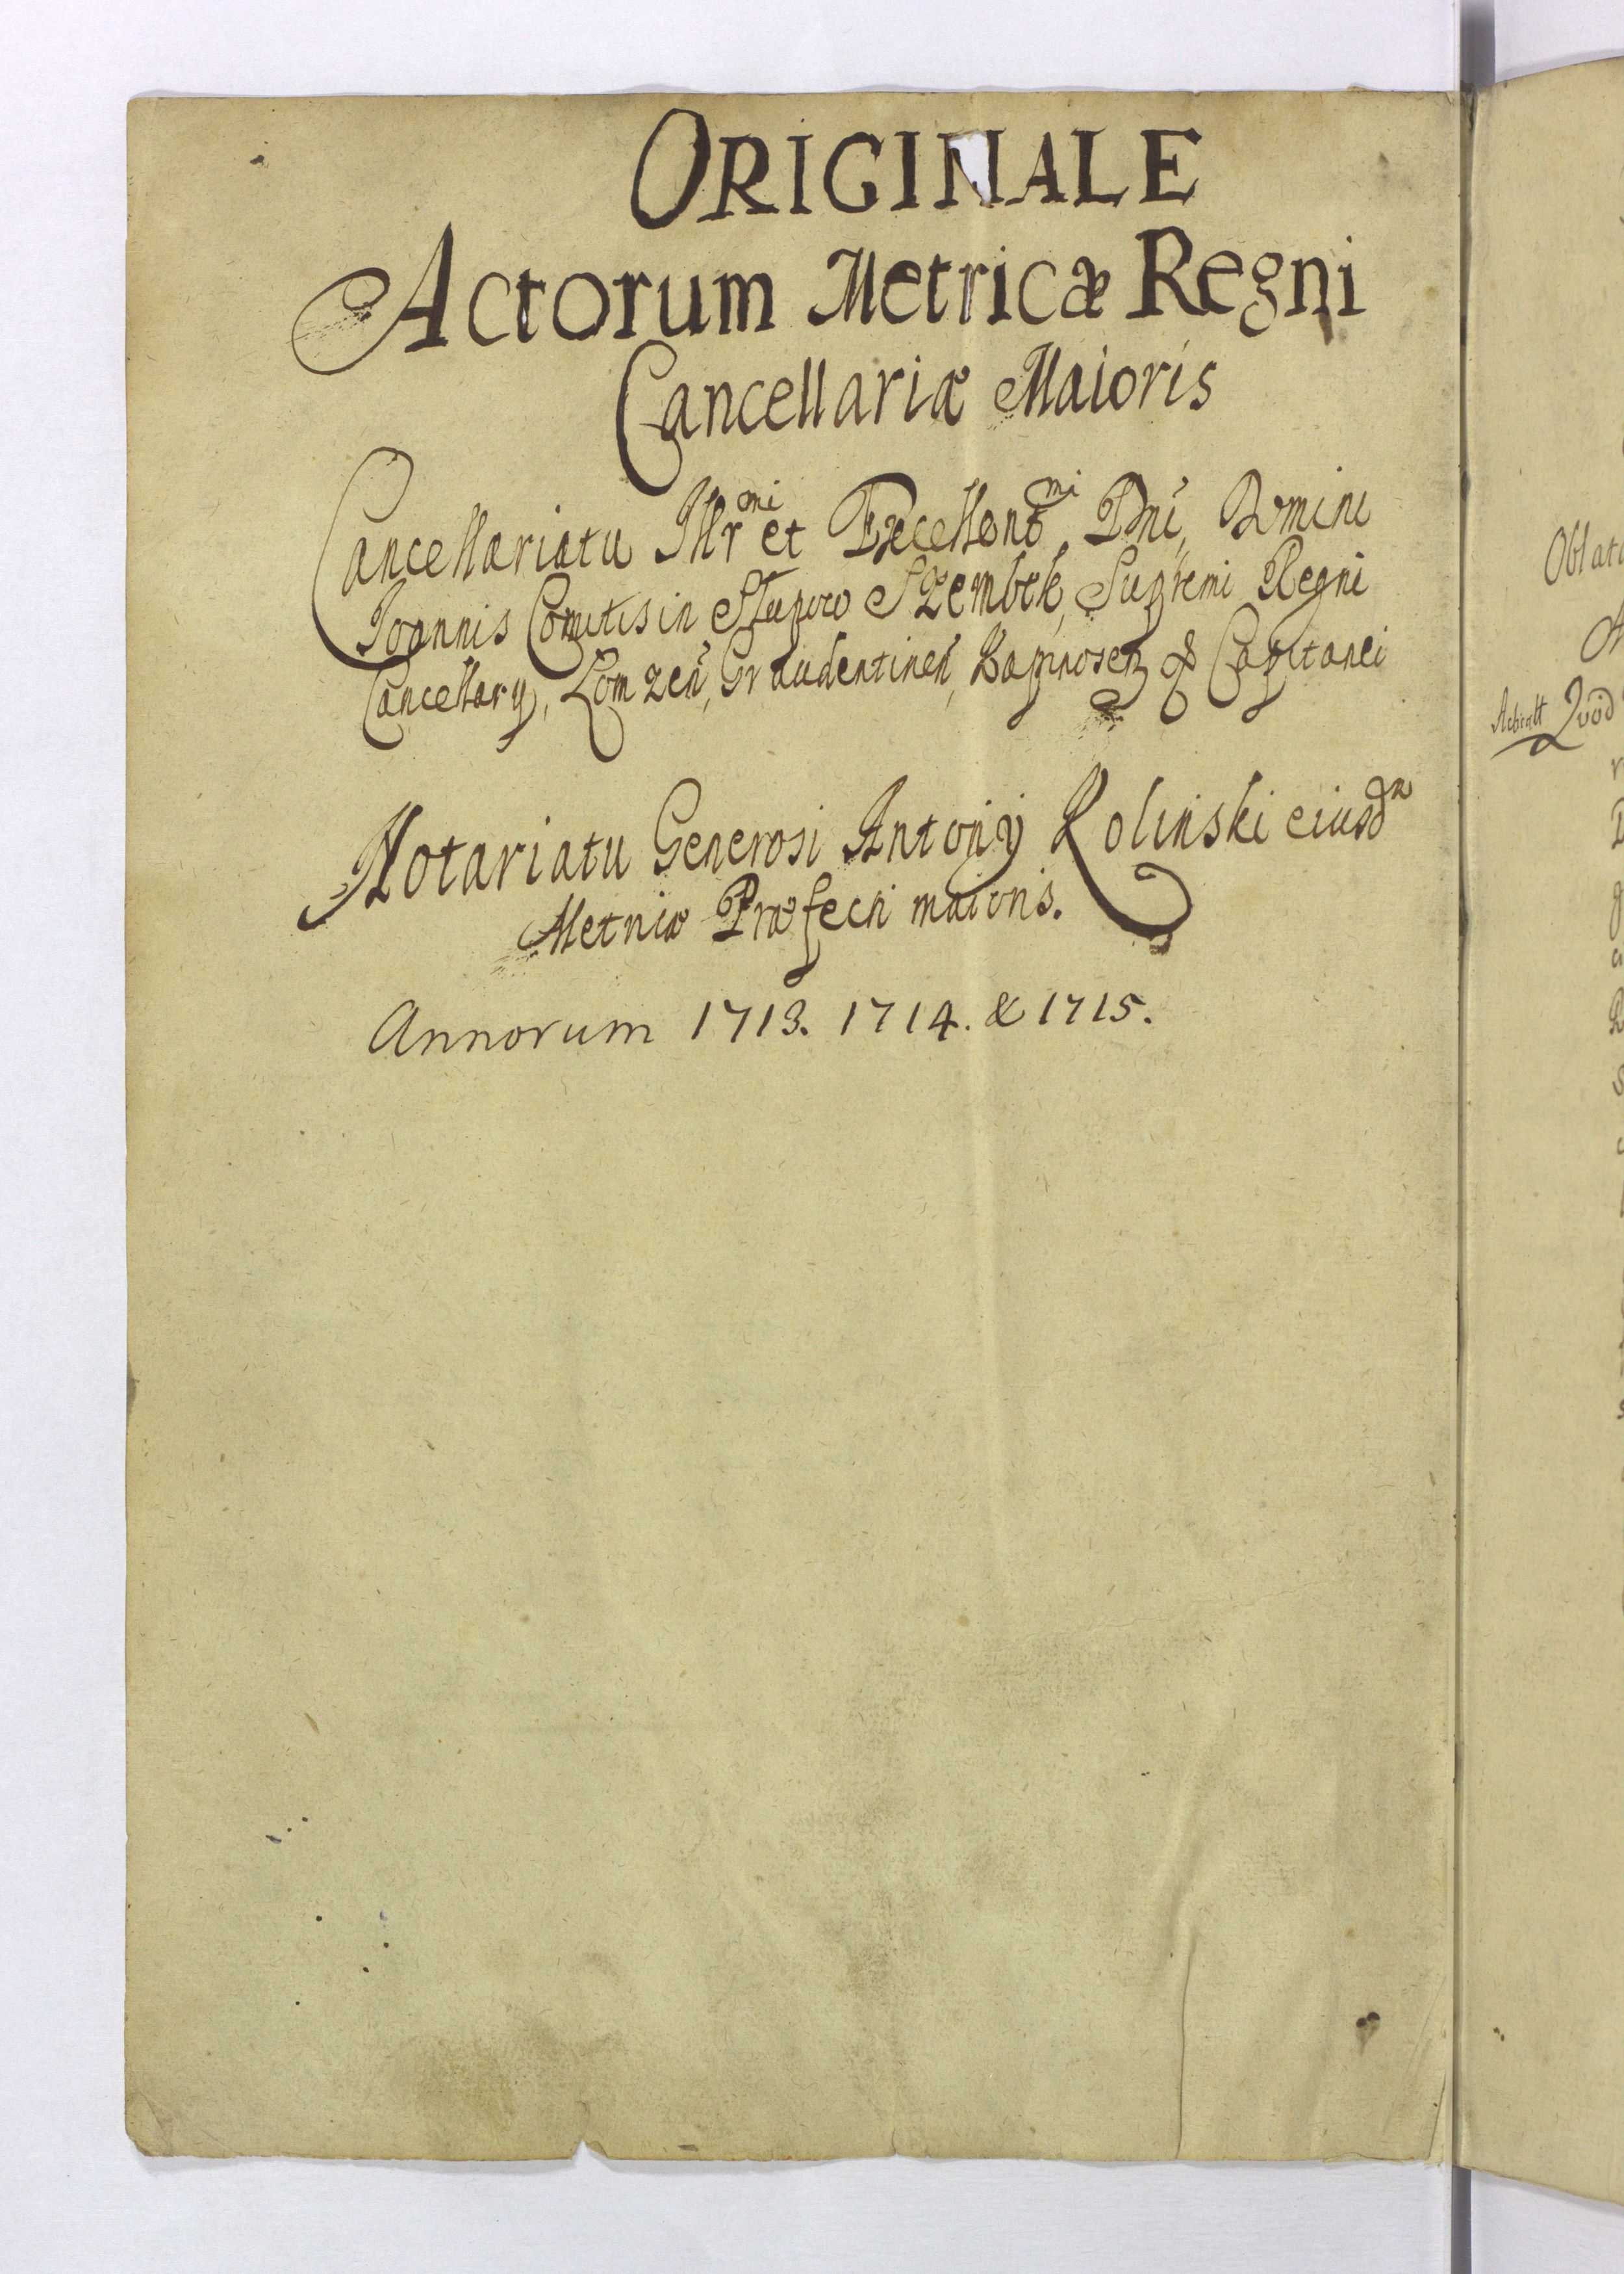 ORIGINALE
Actorum Metricæ Regni
Cancellariæ Maioris
Cancellariatu Illrmi et Excellentmi Dni, Domini
Joannis Comitis in Słupow Szembek, Supremi Regni
Cancellarij, Lomzen, Graudentinen, & Capitanei
Notariatu Generosi Antonij Rolinski eiusdm
Metricæ Præfecti maioris.
Annorum 1713. 1714. & 1715.
Quod